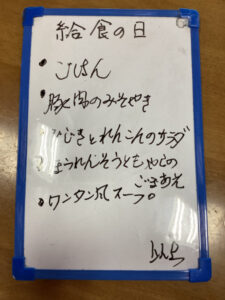 給食の日
・ごはん
・豚肉のみそやき
ひじきとれんこんのサラダ
ほうれんそうともやしの
ごまあえ
・ワンタン風スープ。